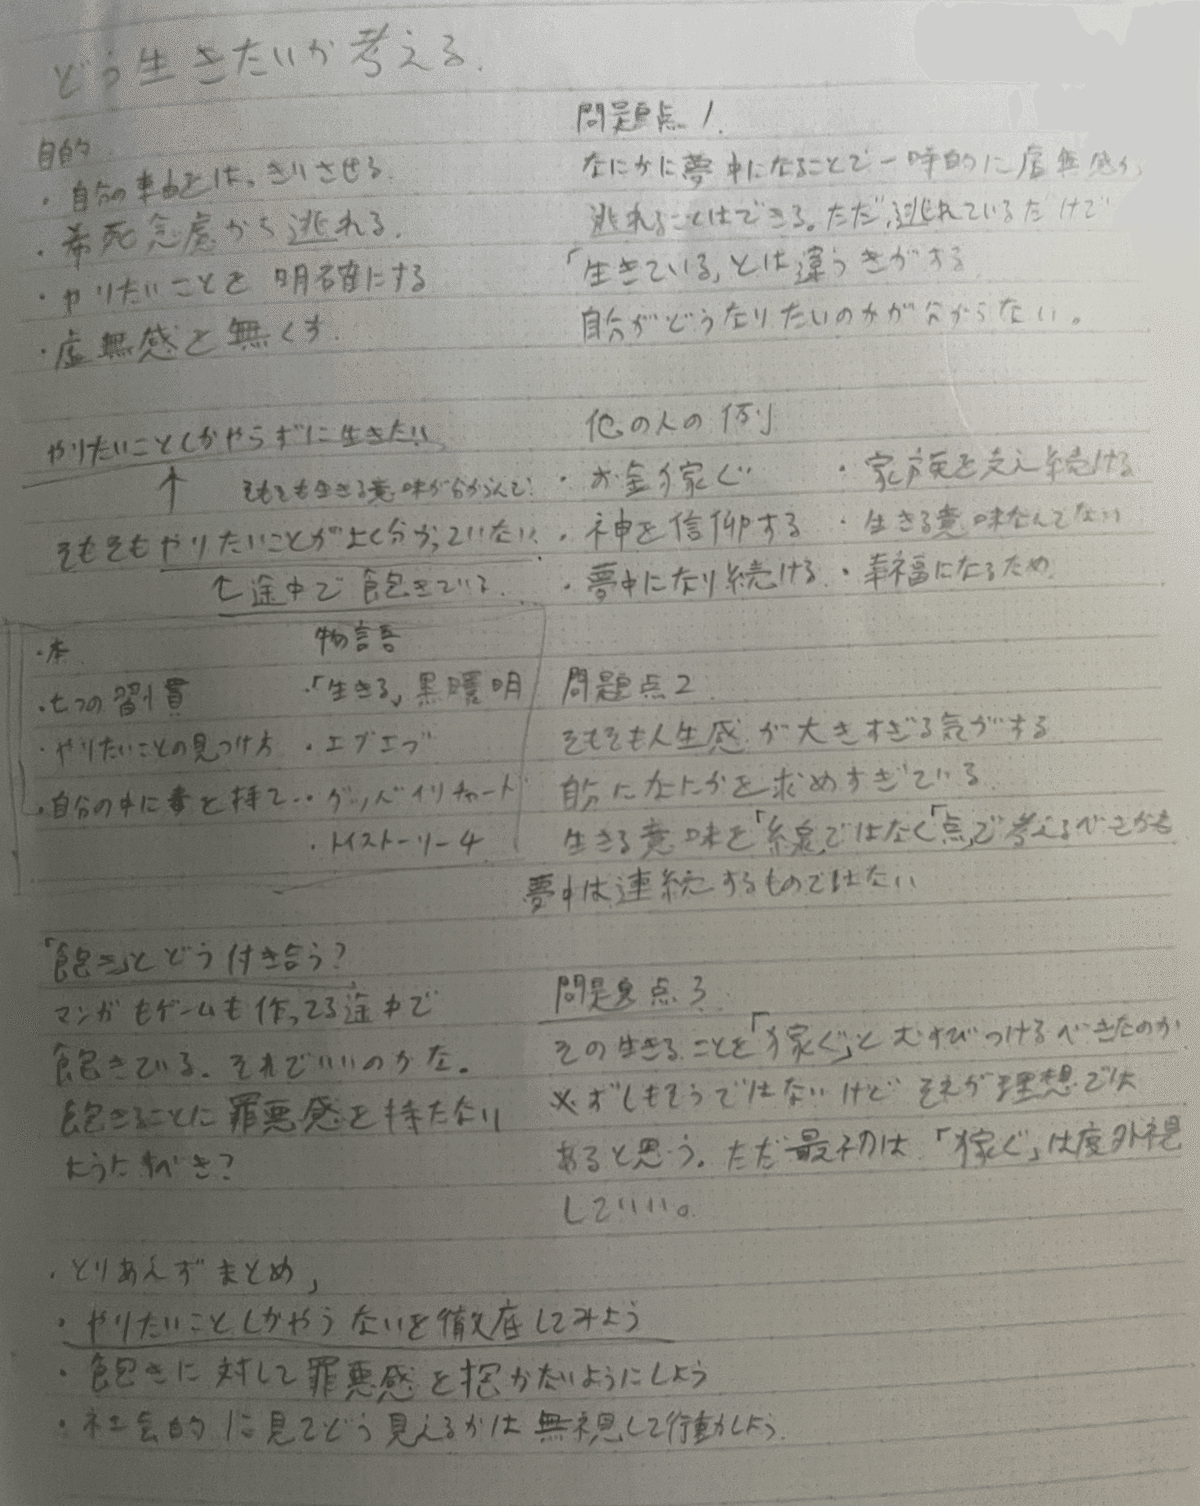 どう生きたいか考える.
目的
・自分の軸をはっきりさせる.
・希死念慮から逃れる.
・やりたいことを明確にする
・虚無感を無くす.
やりたいことしかやらずに生きたい
↑ そもそも生きる意味が分からんて!
そもそもやりたいことがよく分かっていない.
↑途中で飽きている.
・本
・七つの習慣
・やりたいことの見つけ方
・自分の中に毒を持て・
物語
・「生きる」黒澤明
・エブエブ
・グッバイリチャード
・トイストーリー4
「飽き」とどう付き合う?
マンガもゲームも作ってる途中で
飽きている. それでいいのかな。
飽きることに罪悪感を持たない
ようにすべき?
問題点1.
なにかに夢中になることで一時的に虚無感から
逃れることはできる。ただ、逃れているだけで
「生きている」とは違うきがする
自分がどうなりたいのかが分からない。
他の人の例
・お金稼ぐ ・家族を支え続ける
・神を信仰する ・生きる意味なんてない
・夢中になり続ける ・幸福になるため
問題点2
そもそも人生感が大きすぎる気がする
自分になにかを求めすぎている
生きる意味を「線」ではなく「点」で考えるべきかも
夢中は連続するものではない
問題点3.
その生きることを「稼ぐ」とむすびつけるべきなのか
必ずしもそうではないけど それが理想では
あると思う。ただ最初は、「稼ぐ」は度外視
していい。
・とりあえずまとめ,
・やりたいことしかやらないを徹底してみよう
・飽きに対して罪悪感を抱かないようにしよう
・社会的に見てどう見えるかは無視して行動しよう.